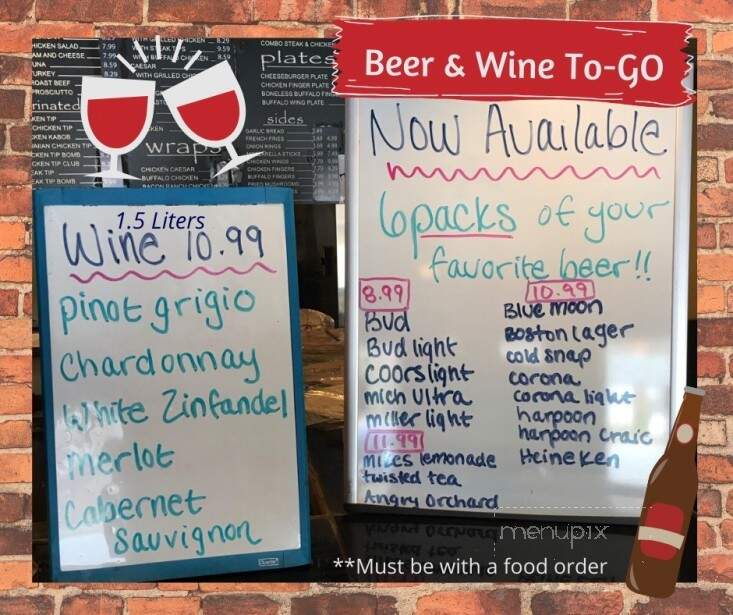 Beer & Wine To-GO
HICKEN SALAD 7.99
AM AND CHEESE 7.99
UNA 8.59
URKEY 8.29
OAST BEEF
PROSCIUTTO
rinated
KEN TIP
CHICKEN TIP
KEN KABOB
CKEN TIP BOMB
CKEN TIP CLUB
EAK TIP
EAK TIP BOMB
8.29
WITH STEAK TIPS 9.59
9.59
CAESAR
WITH GRILLED
wraps
CHICKEN CAESAR
BUFFALO CHICKEN
COMBO STEAK & CHICKE
plates
CHEESEBURGER PLATE
CHICKEN FINGER PLATE
BONELESS BUFFALO
BUFFALO WING PLATE
sides
GARLIC BREAD
FRENCH FRIES
ONION RINGS
CHICKEN WINGS
CHICKEN FINGERS
BUFFALO FINGERS
1.5 Liters
Wine 10.99
pinot grigio
Chardonnay
White Zinfandel
merlot
Cabernet
Sauvignon
Now Available
6packs of your
favorite beer!!
8.99
Bud
Bud light
Coors light
mich Ultra
miller light
11.99
mikes lemonade
twisted tea
Angry Orchard
10.99
Blue moon
Boston lager
cold snap
corona
corona light
harpoon
harpoon Craic
Heineken
menupix
**Must be with a food order